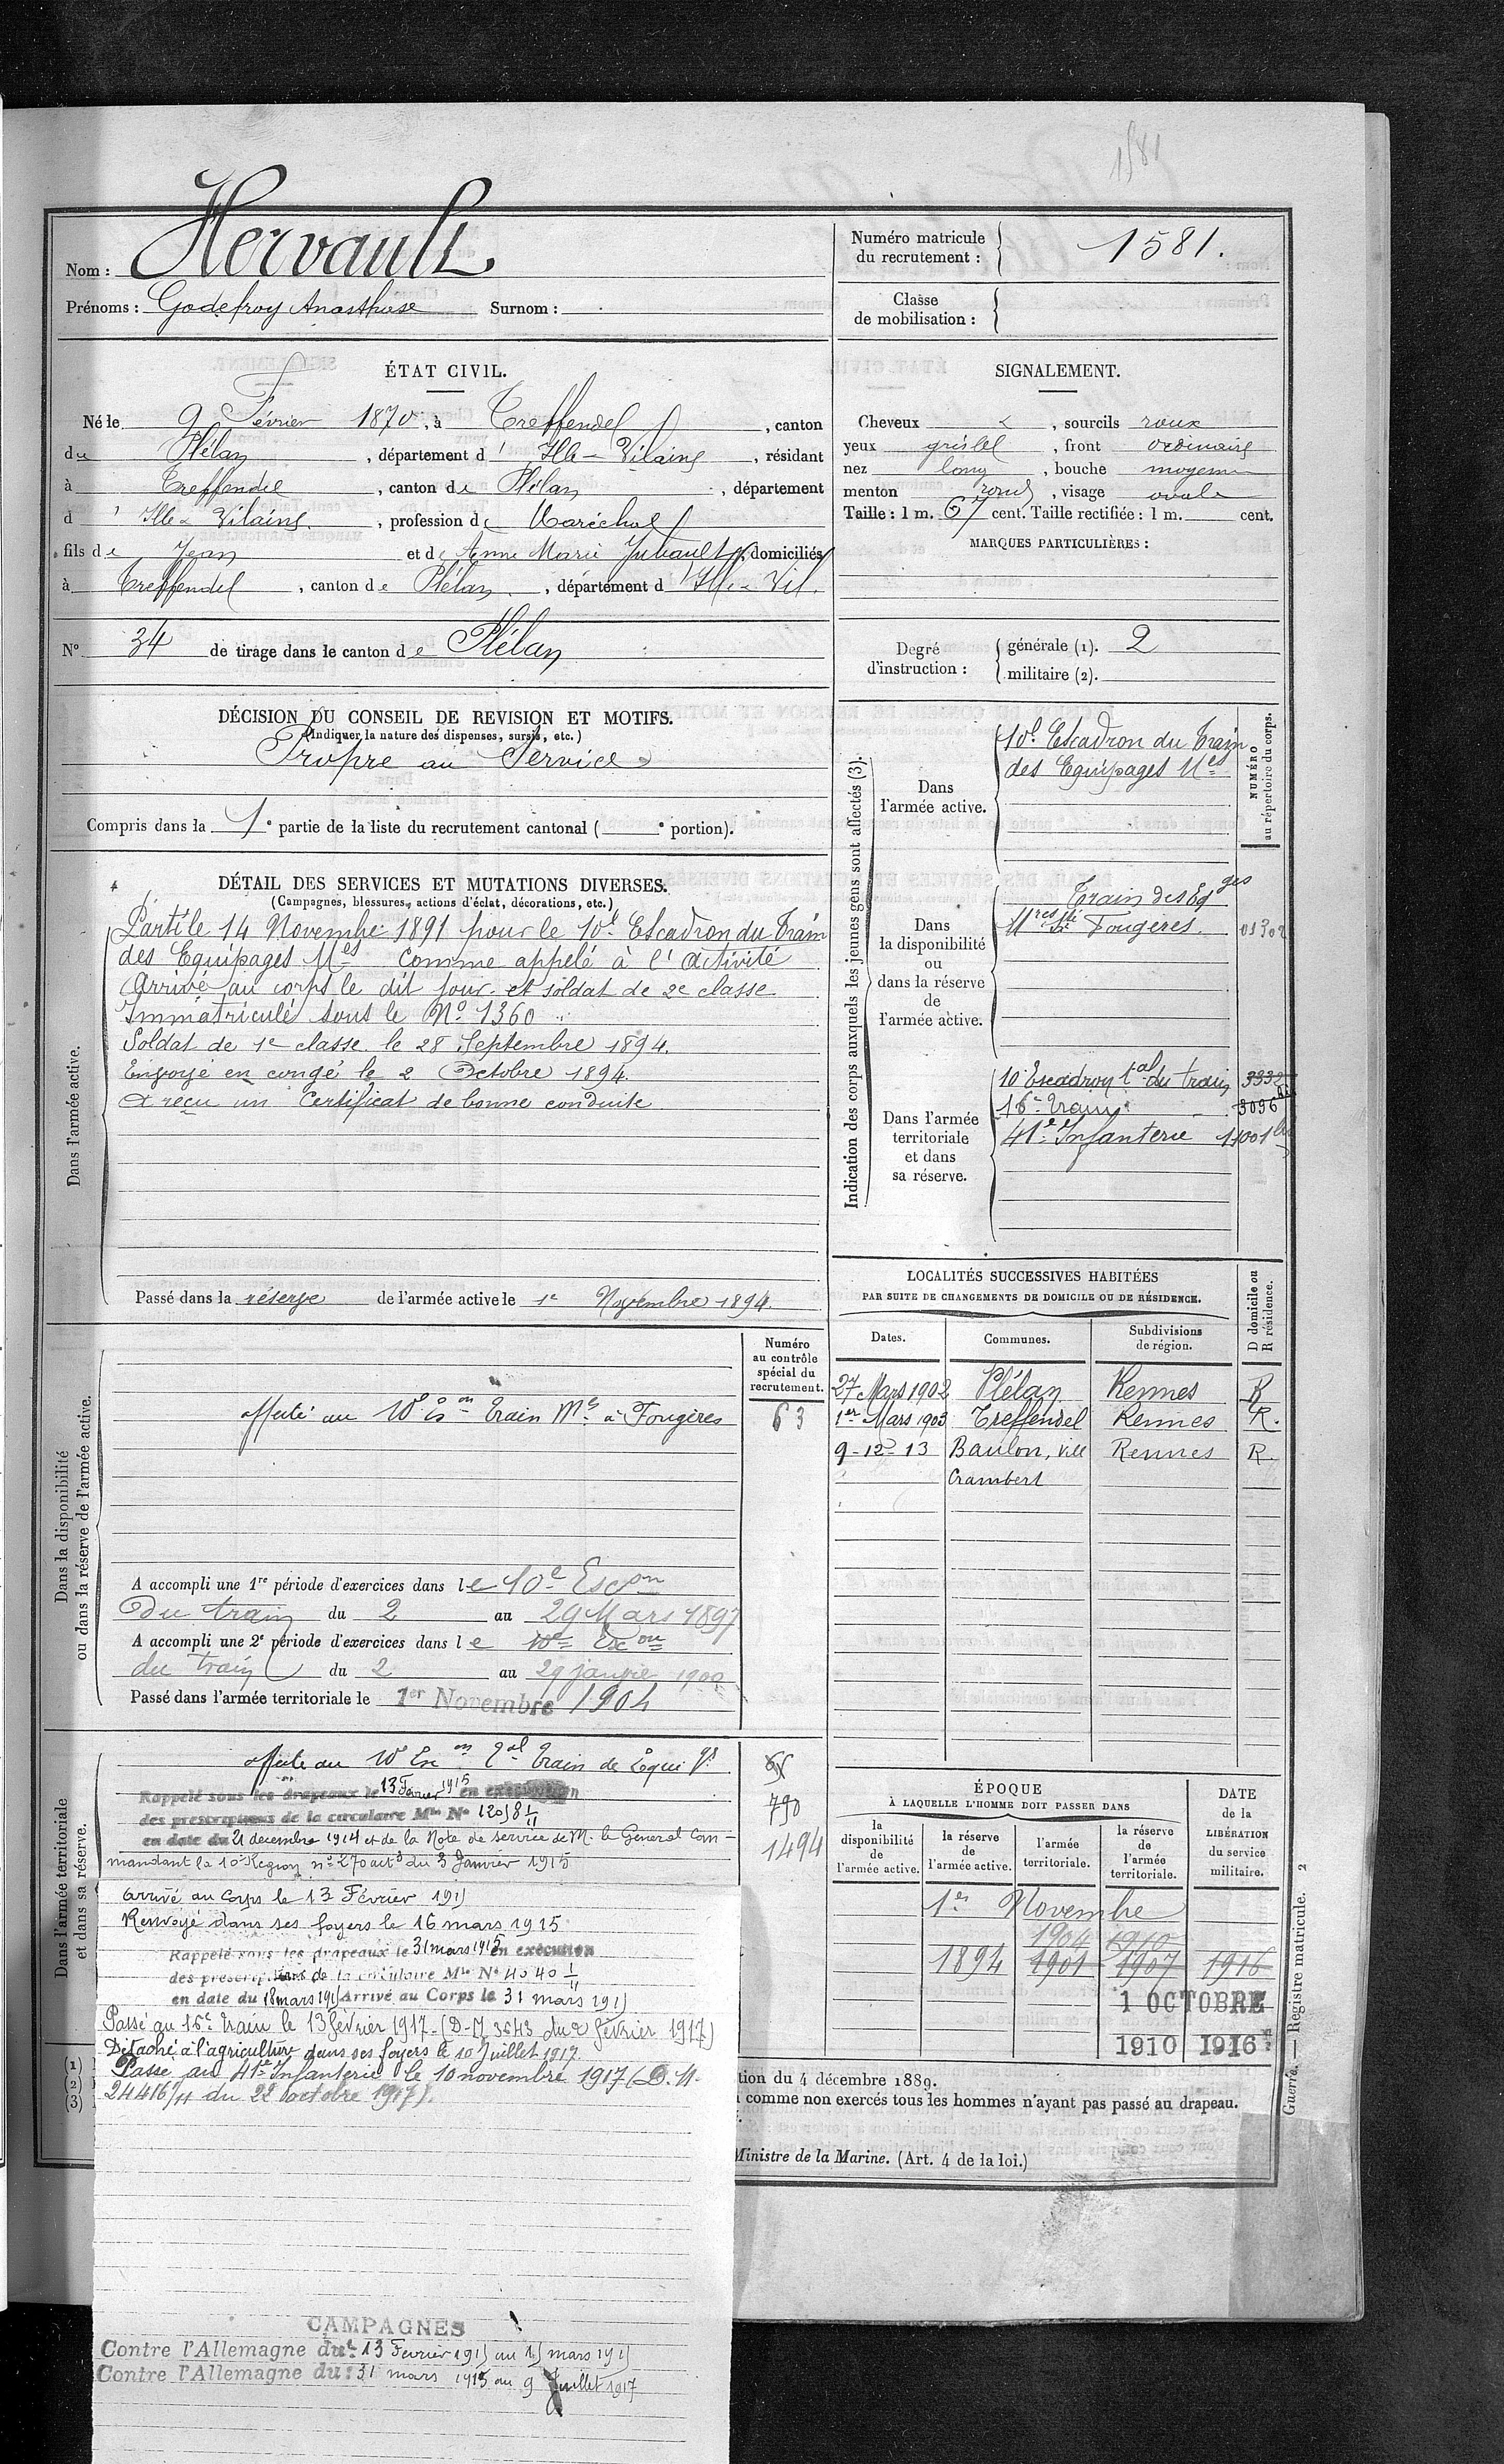 1581
Nom : Hervault
Prénoms : Godefroy Anasthase Surnom :
Numéro matricule
du recrutement : 1581.
Classe
de mobilisation :
ÉTAT CIVIL.
Né le 9 Février 1870, à Treffendel, canton
du Plélan, département d' Ille-Vilaine, résidant
à Treffendel, canton de Plélan, département
d' Ille-Vilaine, profession de Maréchal
fils de Jean et de Anne Marie, domiciliés
à Treffendel, canton de Plélan, département d' Ille-Vil.
N° 34 de tirage dans le canton de Plélan
SIGNALEMENT.
Cheveux, sourcils roux
yeux, front ordinaire
nez long, bouche moyenne
menton rond, visage ovale
Taille : 1 m. 67 cent. Taille rectifiée : 1 m. cent.
MARQUES PARTICULIÈRES :
Degré
d'instruction :
générale (1). 2
militaire (2).
DÉCISION DU CONSEIL DE REVISION ET MOTIFS.
(Indiquer la nature des dispenses, sursis, etc.)
Propre au Service
Compris dans la 1e partie de la liste du recrutement cantonal ( e portion).
DÉTAIL DES SERVICES ET MUTATIONS DIVERSES.
(Campagnes, blessures, actions d'éclat, décorations, etc.)
Dans l'armée active.
Parti le 14 Novembre 1891 pour le 10e Escadron du Train
des Equipages Mes comme appelé à l'activité
Arrivé au corps le dit jour et soldat de 2e classe
Immatriculé sous le No 1360
Soldat de 1e classe le 28 Septembre 1894.
Envoyé en congé le 2 Octobre 1894.
A reçu un Certificat de bonne conduite
Passé dans la réserve de l'armée active le 1e Novembre 1894.
Indication des corps auxquels les jeunes gens sont affectés (3).
NUMÉRO
au répertoire du corps.
Dans
l'armée active.
10e Escadron du Train
des Equipages Mes
Dans
la disponibilité
ou
dans la réserve
de
l'armée active.
Train des Eqges
Mres Fougères. 01302
Dans l'armée
territoriale
et dans
sa réserve.
10e Escadron tal du train 3332
16e Train 3096
41e Infanterie 11001
LOCALITÉS SUCCESSIVES HABITÉES
PAR SUITE DE CHANGEMENTS DE DOMICILE OU DE RÉSIDENCE.
D domicile ou
R résidence.
Dates. Communes. Subdivisions
de région.
27 Mars 1902 Plélan Rennes R
1er Mars 1903 Treffendel Rennes R.
9-12-13 Baulon, Vill Rennes R.
Crambert
Dans la disponibilité
ou dans la réserve de l'armée active.
Numéro
au contrôle
spécial du
recrutement.
affecté au 10e Eson Train Mre à Fougères 63
A accompli une 1re période d'exercices dans le 10e Escon
Du train du 2 au 29 Mars 1897
A accompli une 2e période d'exercices dans le 10e Escon
du train du 2 au 29 janvier 1900
Passé dans l'armée territoriale le 1er Novembre 1904
Dans l'armée territoriale
et dans sa réserve.
affecté au 10e Escon Tal Train
790
1494
Rappelé sous les drapeaux le 13 Février 1915 en exécution
des prescriptions de la circulaire Mlle No
en date du 21 decembre 1914 et de la Note de service de M. le General Com-
mandant la 10e Region no 270 du 3 Janvier 1915
arrivé au corps le 13 Février 1915
Renvoyé dans ses foyers le 16 mars 1915
Rappelé sous les drapeaux le 31 mars 1915 en exécution
des prescriptions de la circulaire Mlle No 4040 1/11
en date du 18 mars 1915 Arrivé au Corps le 31 mars 1915
Passé au 16e Train le 13 février 1917 (D-M 3643 du 2 février 1917)
Détaché à l'agriculture dans ses foyers le 10 Juillet 1917.
Passé au 41e Infanterie le 10 novembre 1917 (D.M.
24416 1/11 du 22 octobre 1917).
ÉPOQUE
À LAQUELLE L'HOMME DOIT PASSER DANS
DATE
de la
LIBÉRATION
du service
militaire.
la
disponibilité
de
l'armée active.
la réserve
de
l'armée active.
l'armée
territoriale.
la réserve
de
l'armée
territoriale.
1er Novembre
1904 1910
1894 1901 1907 1916
1 OCTOBRE
1910 1916
(1)
(2)
(3)
tion du 4 décembre 1889.
comme non exercés tous les hommes n'ayant pas passé au drapeau.
Ministre de la Marine. (Art. 4 de la loi.)
Guerre. — Registre matricule. 2
CAMPAGNES
Contre l'Allemagne du: 13 Fevrier 1915 au 15 mars 1915
Contre l'Allemagne du: 31 mars 1915 au 9 Juillet 1917